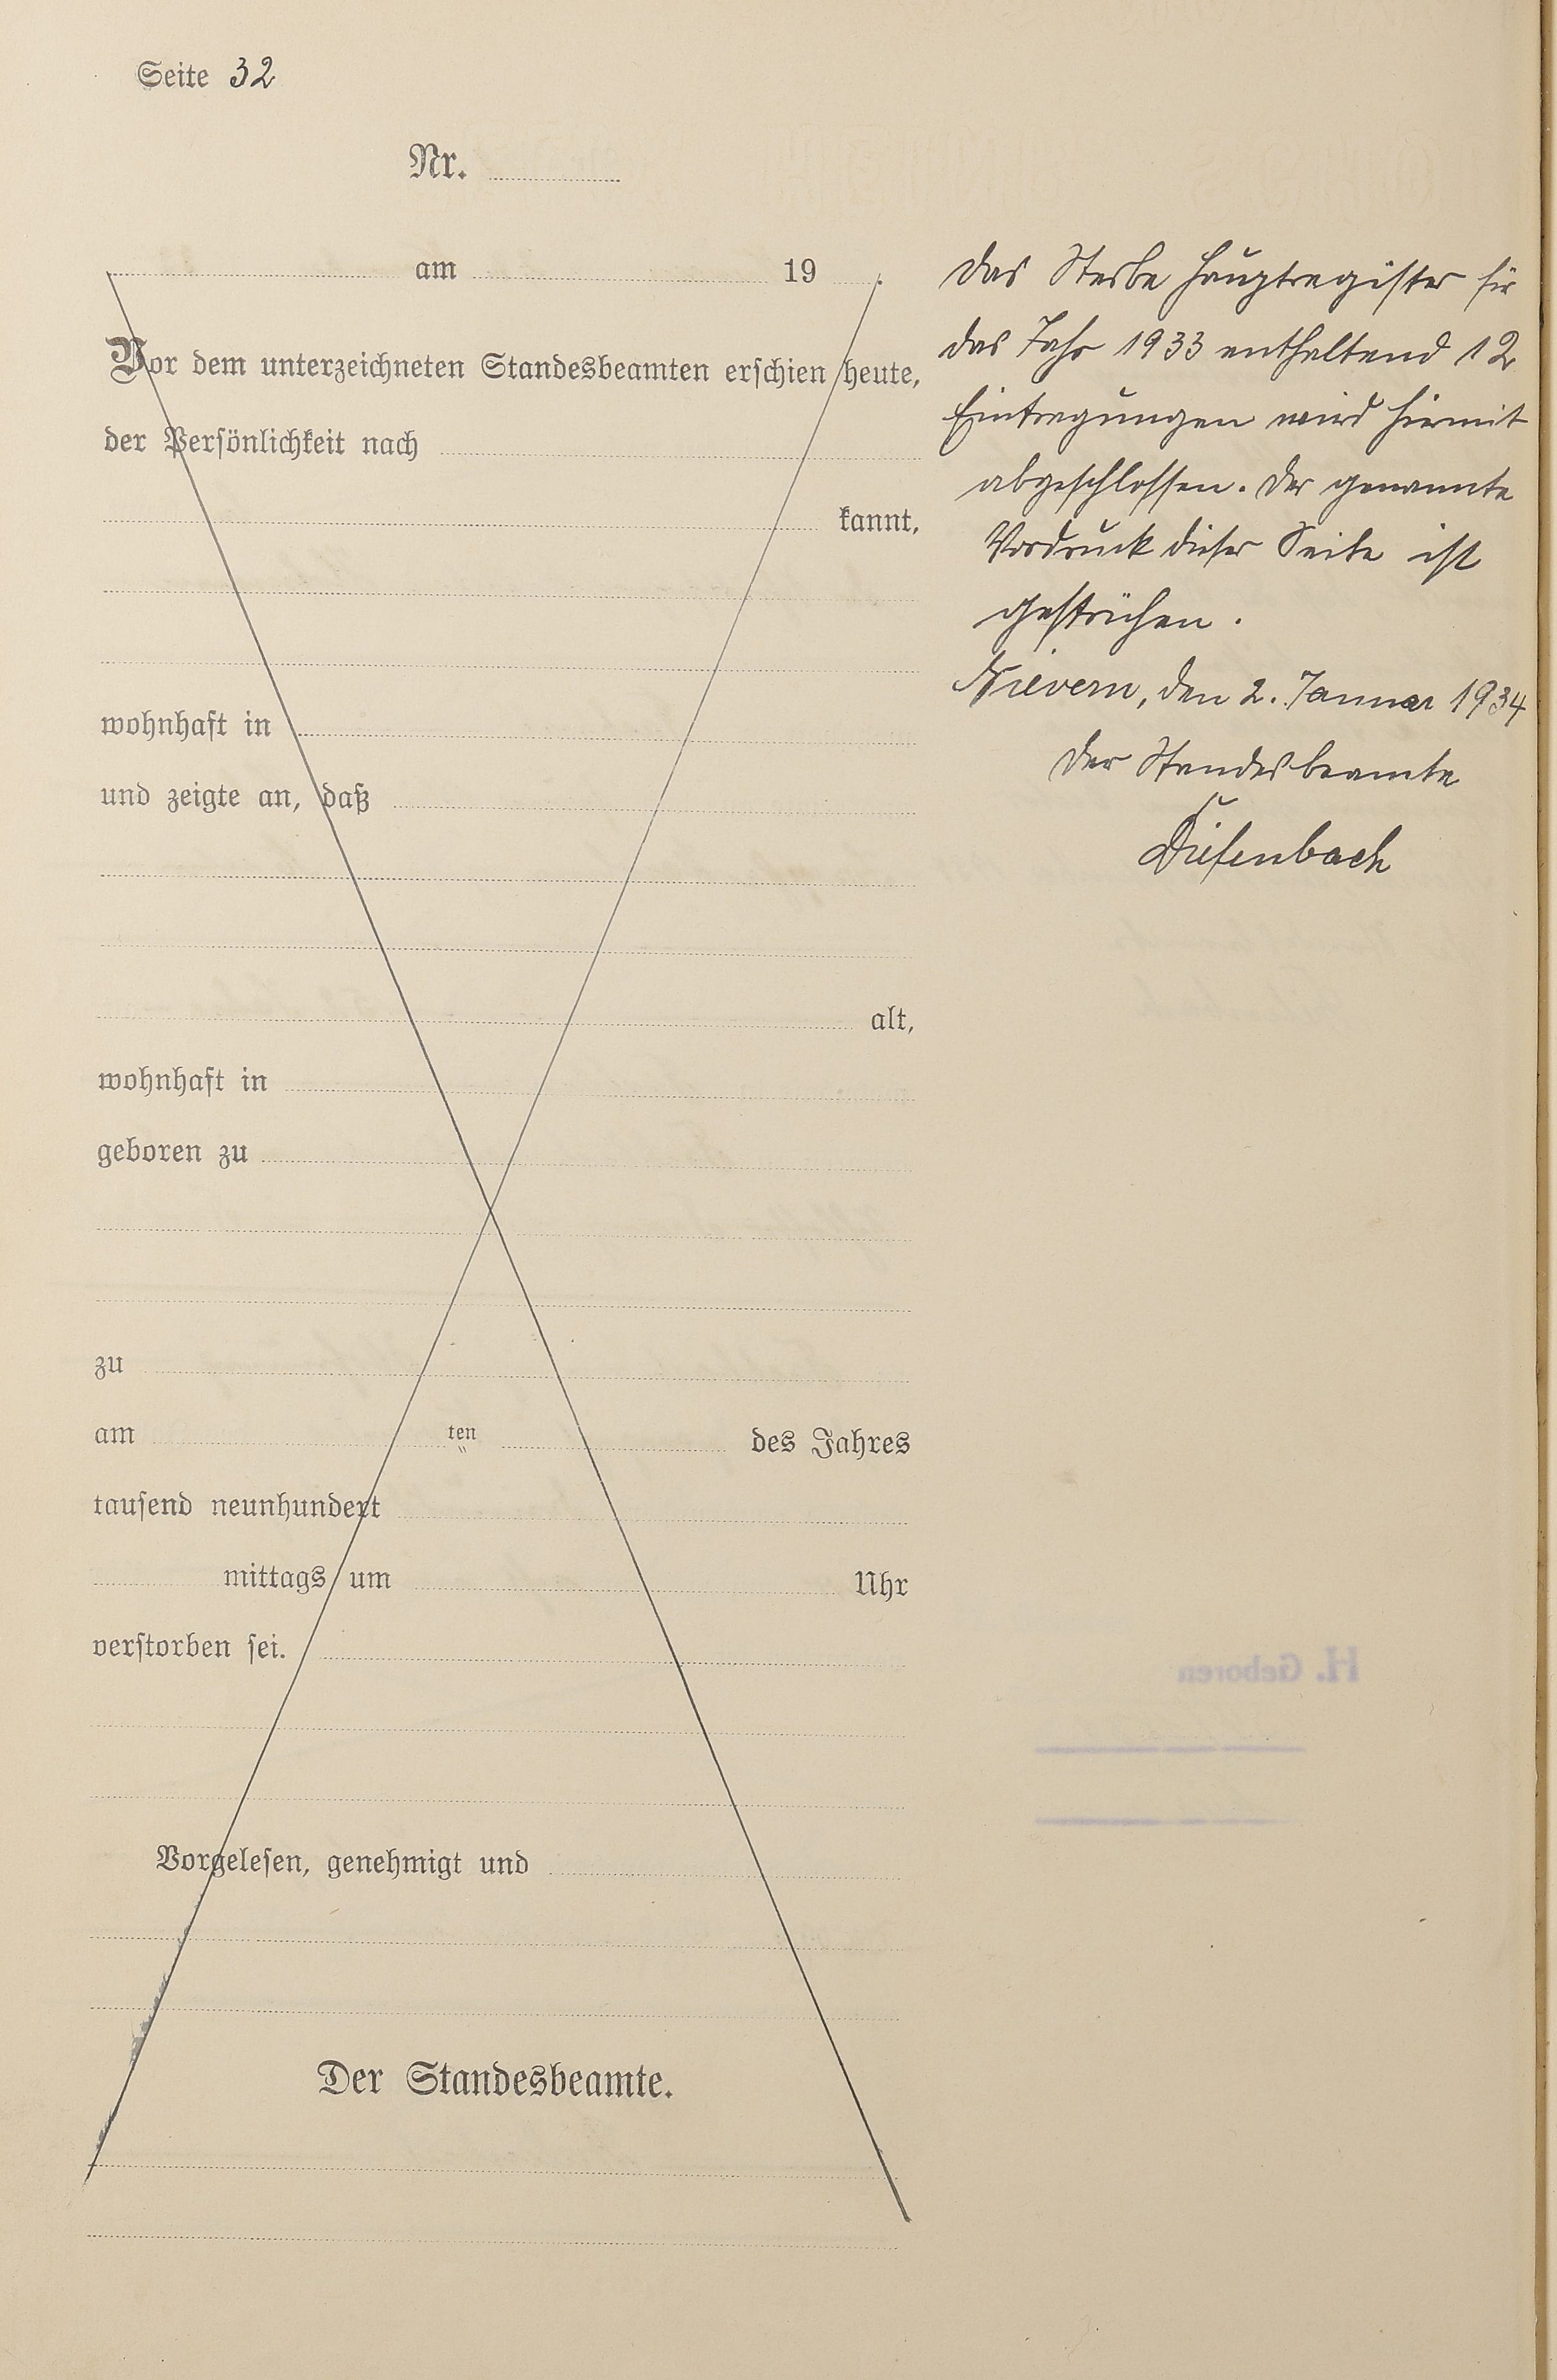 Seite 32
Nr.
am 19 .
Vor dem unterzeichneten Standesbeamten erschien heute,
der Persönlichkeit nach
kannt,
wohnhaft in
und zeigte an, daß
alt,
wohnhaft in
geboren zu
zu
am ten des Jahres
tausend neunhundert
mittags um Uhr
verstorben sei.
Vorgelesen, genehmigt und
Der Standesbeamte.
Das Sterbe Hauptregister für
das Jahr 1933 enthaltend 12
Eintragungen wird hiermit
abgeschlossen. Der genannte
Vordruck dieser Seite ist
gestrichen.
Nievern, den 2. Januar 1934
Der Standesbeamte
Diefenbach
H. Geboren